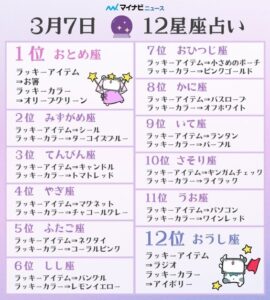 マイナビニュース
3月7日 12星座占い
1位 おとめ座
ラッキーアイテム
→お箸
ラッキーカラー
→オリーブグリーン
2位 みずがめ座
ラッキーアイテム→シール
ラッキーカラー→ターコイズブルー
3位 てんびん座
ラッキーアイテム→キャンドル
ラッキーカラー→トマトレッド
4位 やぎ座
ラッキーアイテム→マグネット
ラッキーカラー→チャコールグレー
5位 ふたご座
ラッキーアイテム→ネクタイ
ラッキーカラー→コーラルピンク
6位 しし座
ラッキーアイテム→バングル
ラッキーカラー→レモンイエロー
7位 おひつじ座
ラッキーアイテム→小さめのポーチ
ラッキーカラー→ピンクゴールド
8位 かに座
ラッキーアイテム→バスローブ
ラッキーカラー→オフホワイト
9位 いて座
ラッキーアイテム→ランタン
ラッキーカラー→パープル
10位 さそり座
ラッキーアイテム→ギンガムチェック
ラッキーカラー→ライラック
11位 うお座
ラッキーアイテム→パソコン
ラッキーカラー→ワインレッド
12位 おうし座
ラッキーアイテム
→ラジオ
ラッキーカラー
→アイボリー